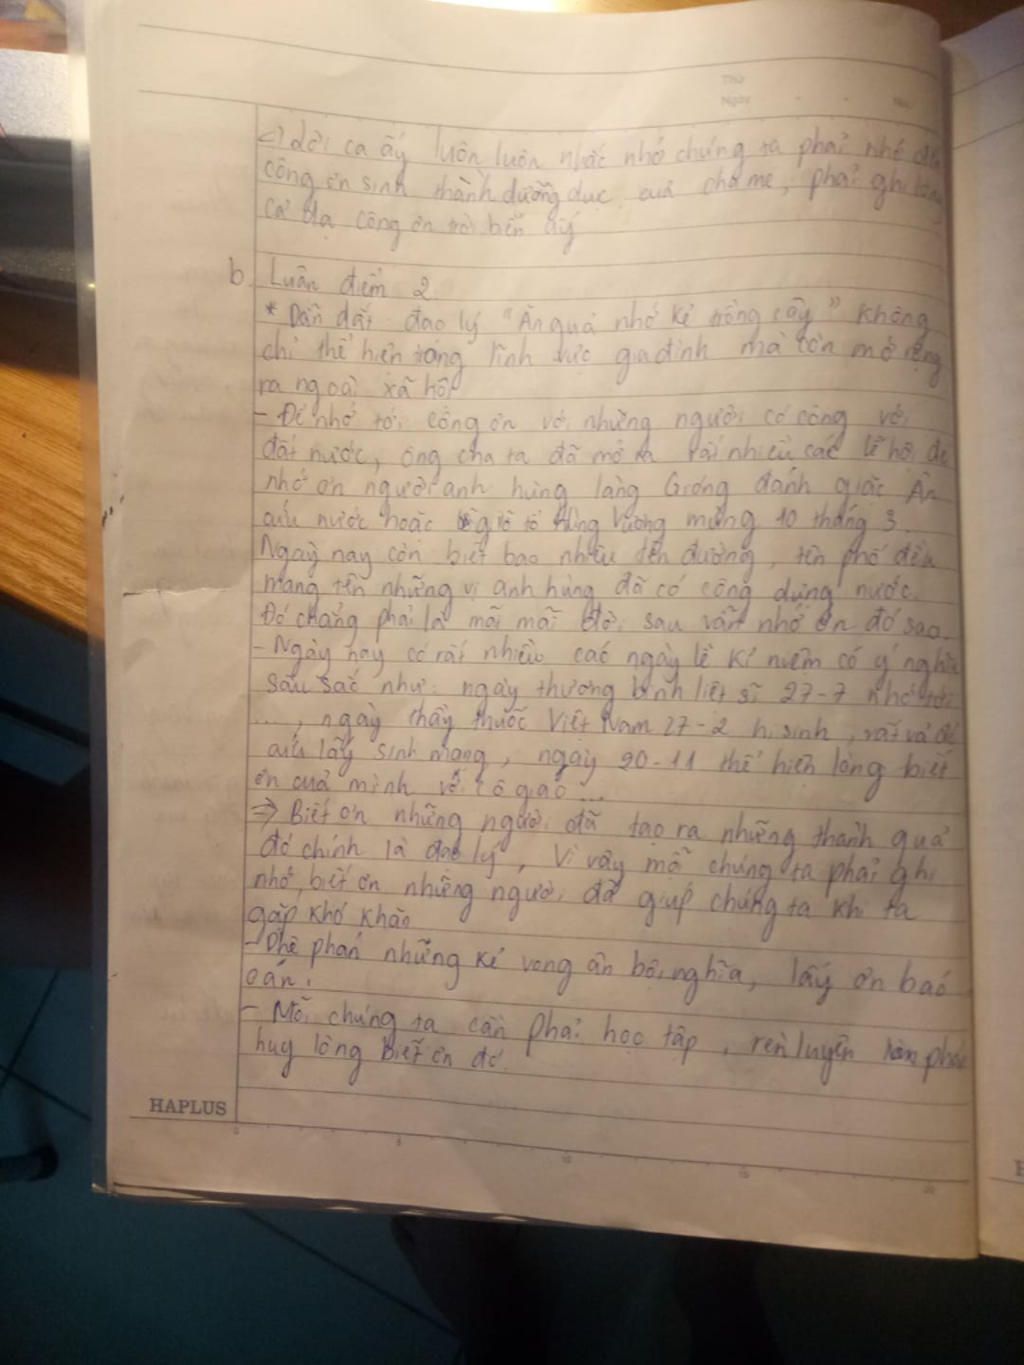 Thứ
Ngày No.
=> Lời ca ấy luôn luôn nhắc nhở chúng ta phải nhớ đến
công ơn sinh thành dưỡng dục của cha mẹ, phải ghi lòng
công ơn trời bển ấy
b. Luận điểm 2
* Dẫn dắt đạo lý "Ăn quả nhớ kẻ trồng cây" không
chỉ thể hiện trong lĩnh vực gia đình mà còn mở rộng
ra ngoài xã hội
- Để nhớ tới công ơn với những người có công với
đất nước, ông cha ta đã mở ra rất nhiều các lễ hội để
nhớ ơn người anh hùng làng Gióng đánh giặc Ân
cứu nước hoặc giỗ tổ Hùng Vương mùng 10 tháng 3
Ngày nay còn biết bao nhiêu tên đường, tên phố đều
mang tên những vị anh hùng đã có công dựng nước.
Đó chẳng phải là mãi mãi đời sau vẫn nhớ ơn đó sao.
- Ngày nay có rất nhiều các ngày lễ kỉ niệm có ý nghĩa
sâu sắc như: ngày thương binh liệt sĩ 27-7 nhớ tới
..., ngày thầy thuốc Việt Nam 27-2 hi sinh, vất vả để
cứu lấy sinh mạng, ngày 20-11 thể hiện lòng biết
ơn của mình với cô giáo ...
=> Biết ơn những người đã tạo ra những thành quả
đó chính là đạo lý, Vì vậy mỗi chúng ta phải ghi
nhớ, biết ơn những người đã giúp chúng ta khi ta
gặp khó khăn
- Phê phán những kẻ vong ân bội nghĩa, lấy ơn báo
oán.
- Mỗi chúng ta cần phải học tập, rèn luyện phát
huy lòng biết ơn đó.
HAPLUS
0 5 10 15 20